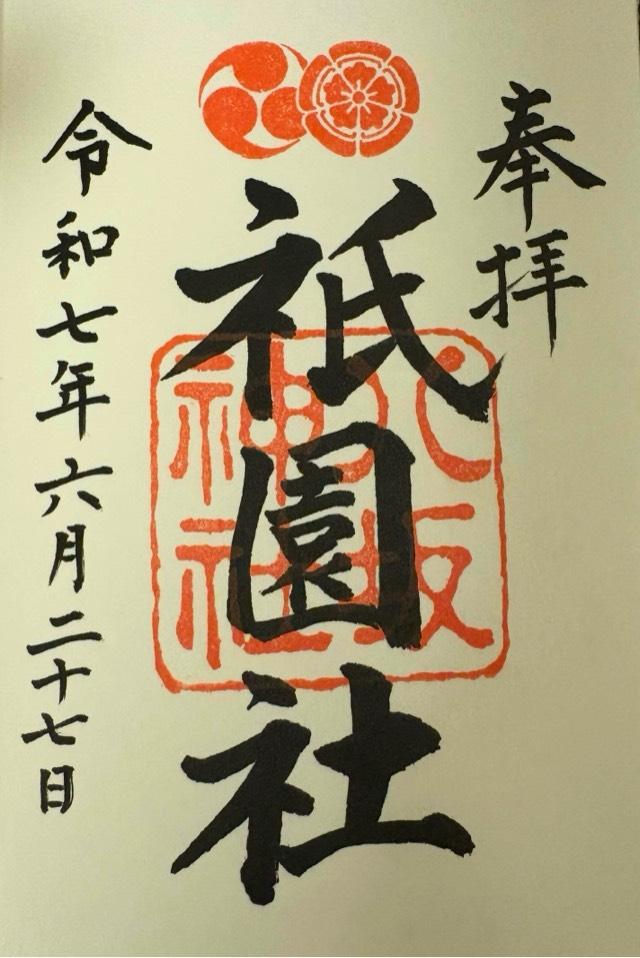 奉拝
祇園社
八坂
神社
令和七年六月二十七日